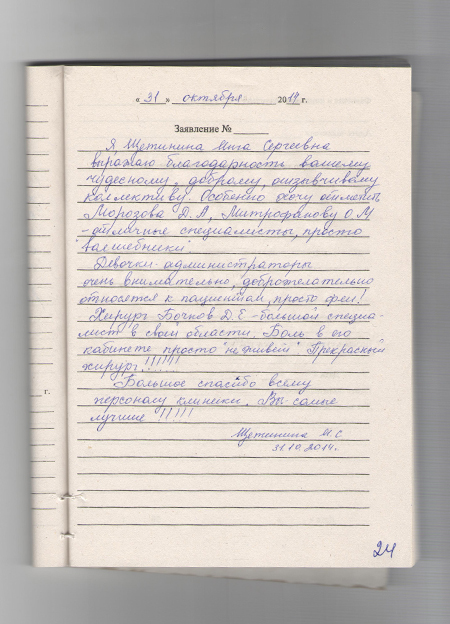 « 31 » октября 2014 г.
Заявление №
Я Щетинина Инга Сергеевна
выражаю благодарность вашему
чудесному, доброму, отзывчивому
коллективу. Особенно хочу отметить
Морозова Д.А, Митрофанову О.М
- отличные специалисты, просто
волшебники
Девочки-администраторы
очень внимательно, доброжелательно
относятся к пациентам, просто феи!
Хирург Бочков Д.Е - большой специа-
лист в своей области. Боль в его
кабинете просто "не живёт" Прекрасный
хирург!!!!!!
Большое спасибо всему
персоналу клиники. Вы - самые
лучшие !!!!!
Щетинина И С
31.10.2014г.
г.
24